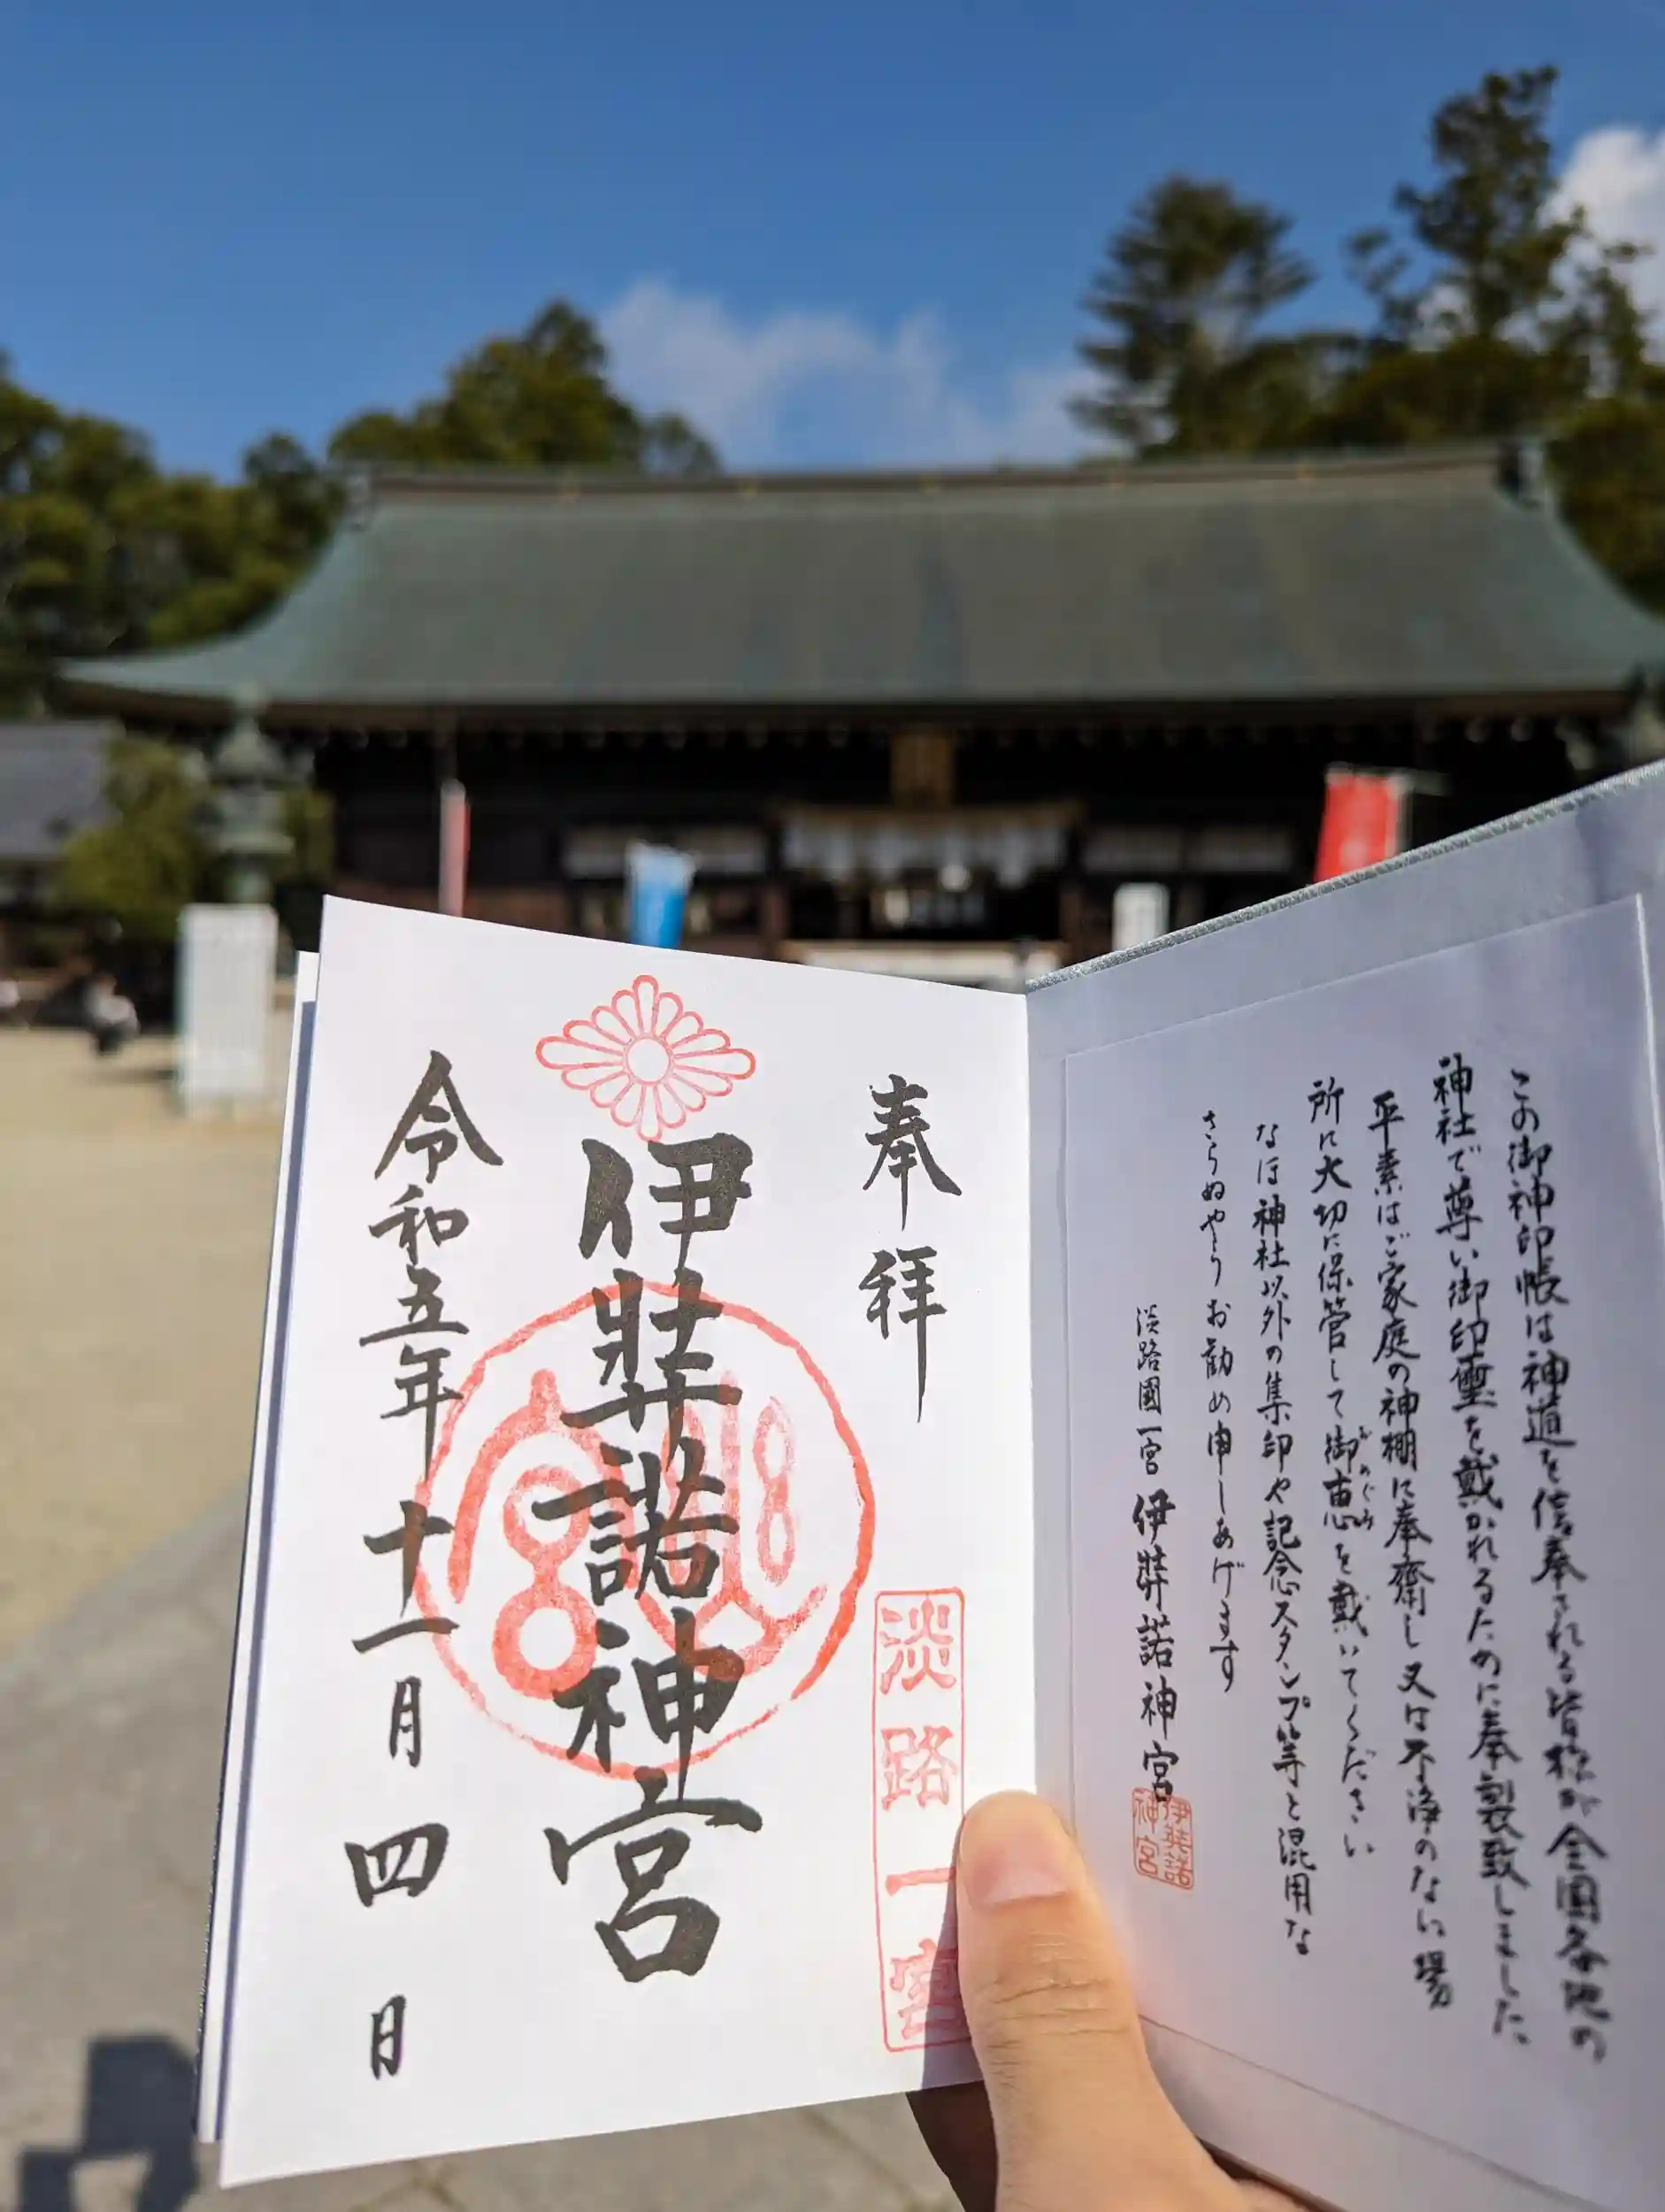 この御神印帳は神道を信奉される皆様が全国各地の
神社で尊い御印璽を戴かれるために奉製致しました。
平素はご家庭の神棚に奉齋し又は不浄のない場
所に大切に保管して御恵を戴いてください
めぐみ
なほ神社以外の集印や記念スタンプ等と混用な
さらぬやうお勧め申しあげます
淡路國一宮 伊弉諾神宮
伊弉諾
神宮
奉拝
淡路一宮
伊弉諾神宮
令和五年十一月四日